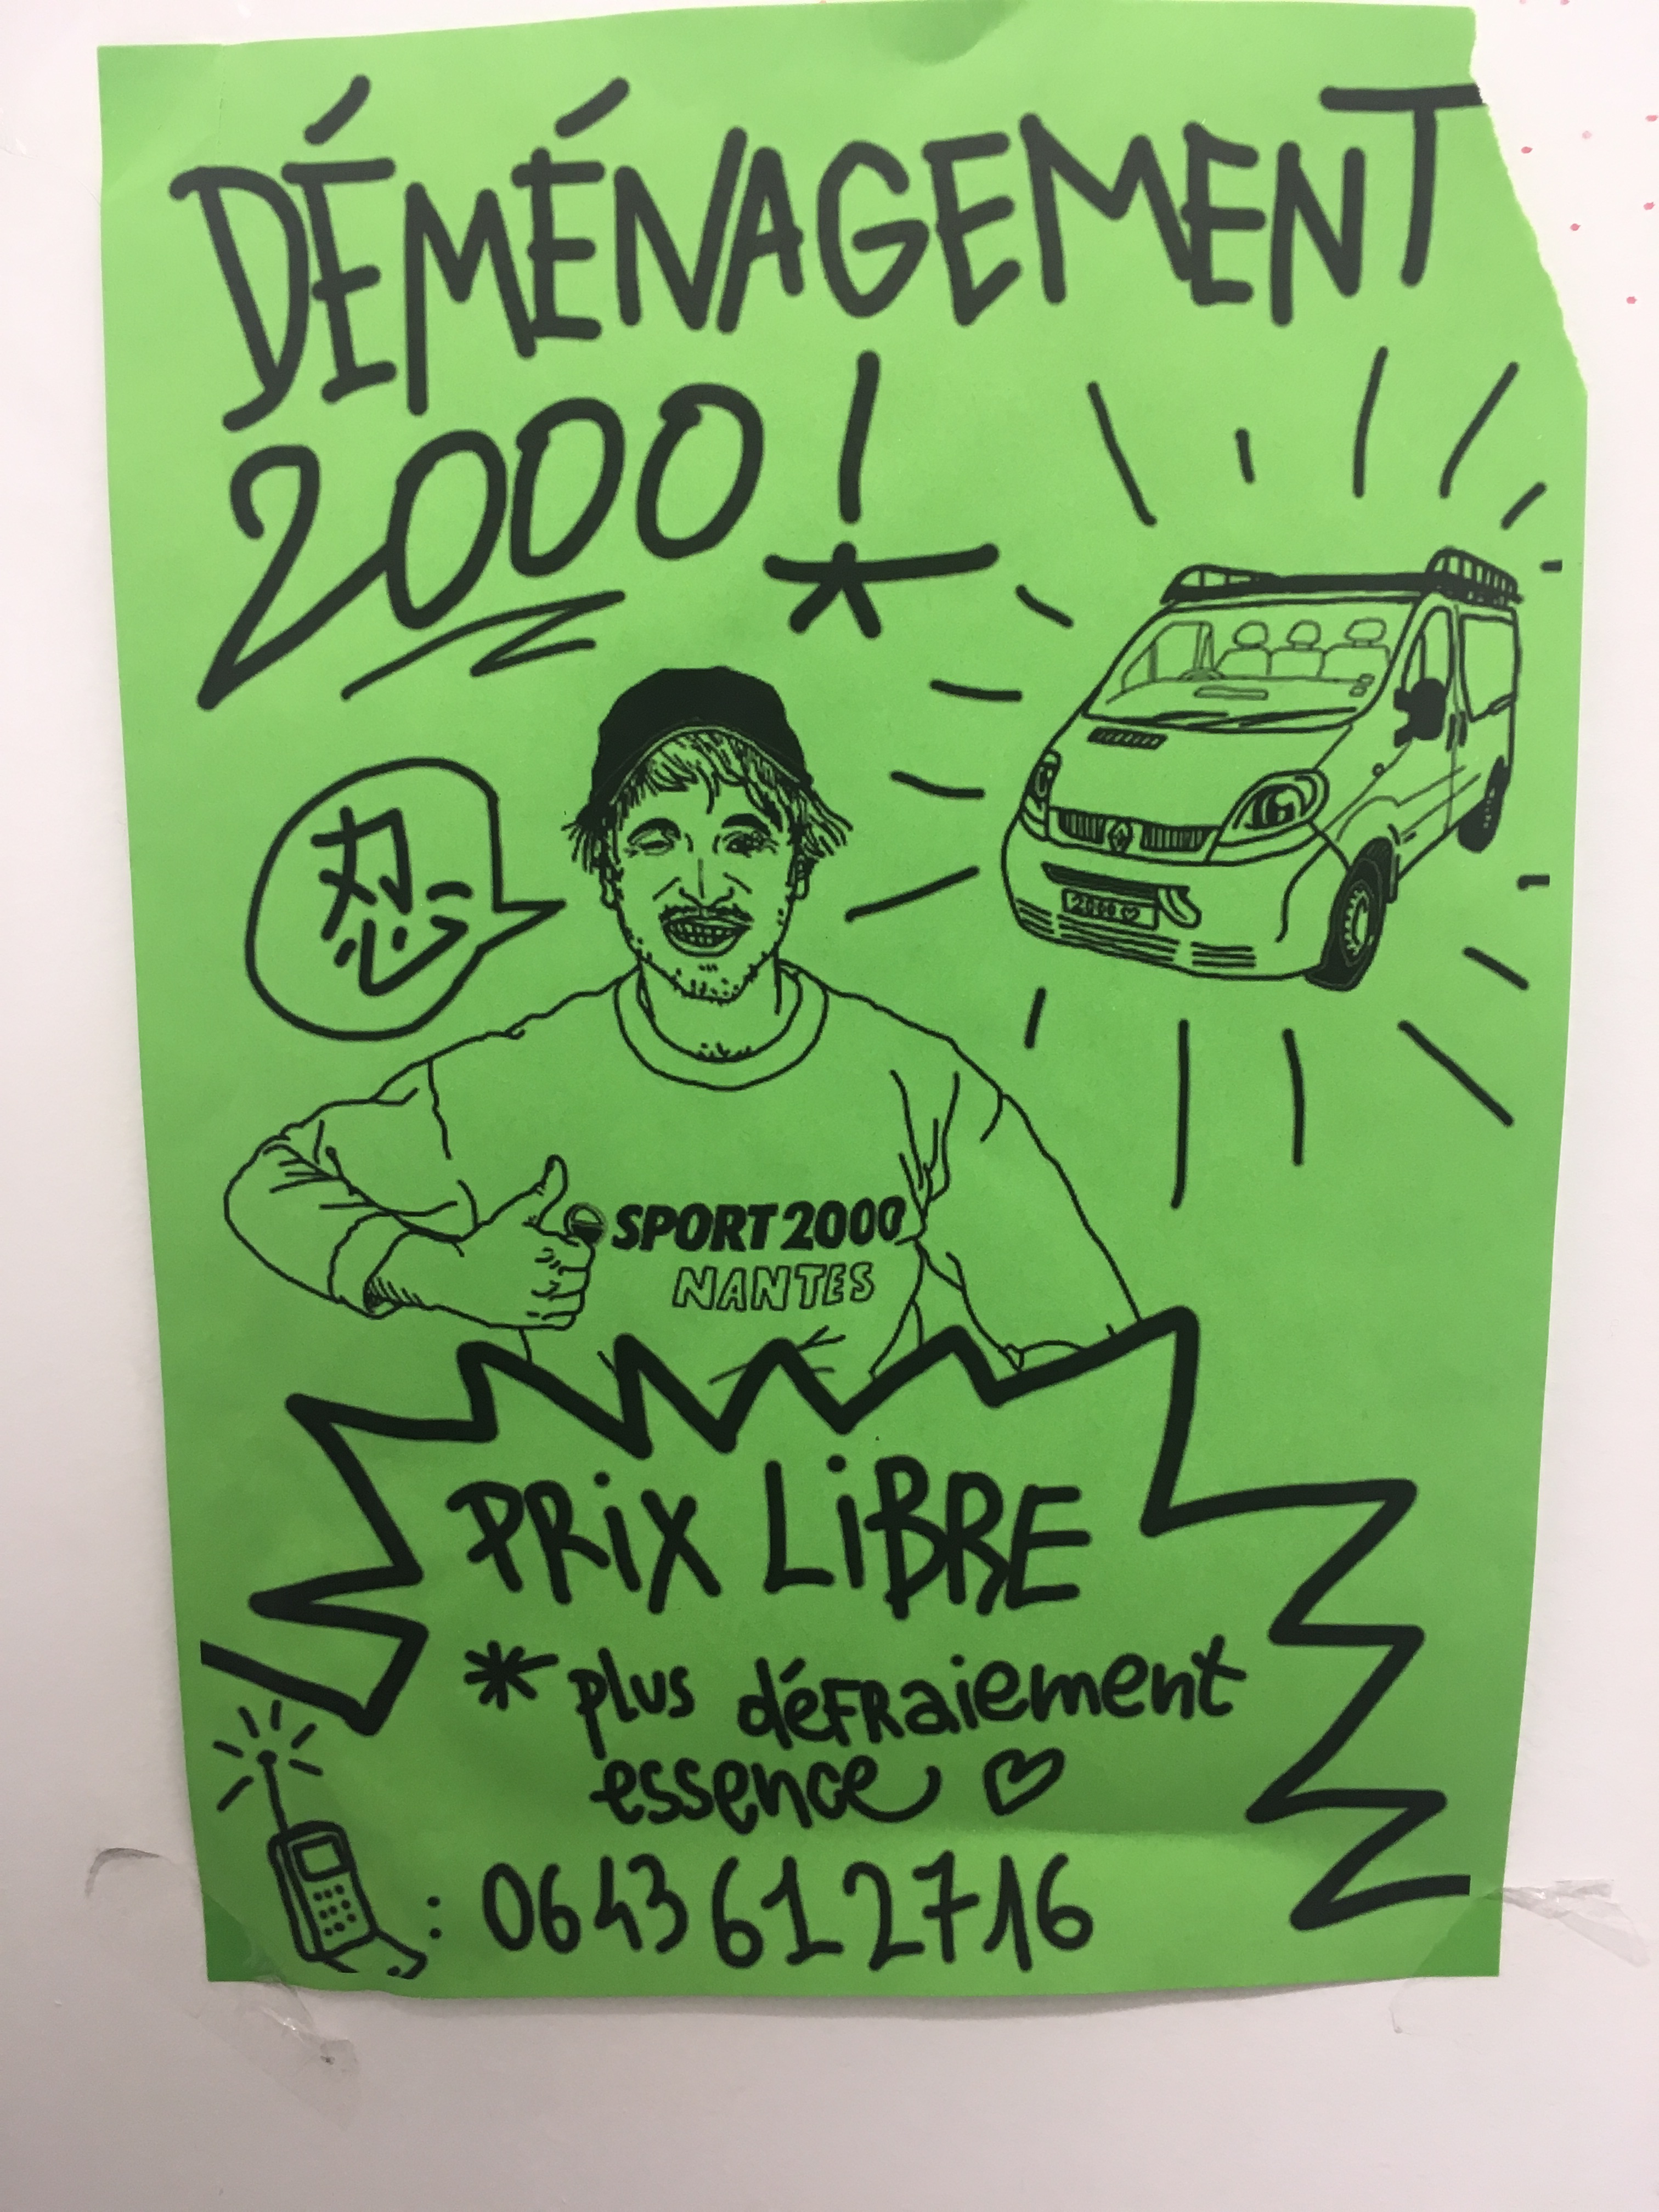 DÉMÉNAGEMENT
2000!
忍
2000
SPORT 2000
NANTES
PRiX LiBRE
* plus défraiement
essence ♡
: 06 43 61 27 16